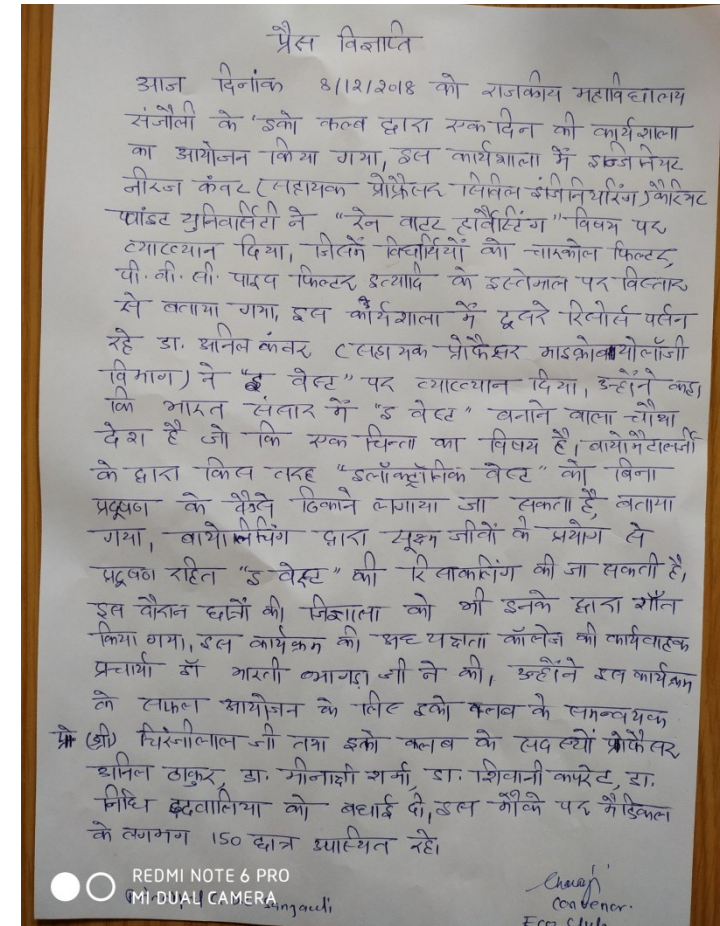 प्रैस विज्ञाप्ति
आज दिनांक 8/12/2018 को राजकीय महाविद्यालय
संजौली के 'इको कल्ब द्वारा एक दिन की कार्यशाला
का आयोजन किया गया, इस कार्यशाला में इन्जिनियर
नीरज कंवर (सहायक प्रोफ़ैसर सिविल इंजिनियरिंग) कैरियर
प्वांइट युनिवर्सिटी ने "रेन वाटर हार्वेस्टिंग" विषय पर
व्याख्यान दिया, जिसमें विद्यार्थियों को चारकोल फिल्टर,
पी. वी. सी. पाइप फिल्टर इत्यादि के इस्तेमाल पर विस्तार
से बताया गया, इस कार्यशाला में दूसरे रिसोर्स पर्सन
रहे डा. अनिल कंवर (सहायक प्रोफैसर माइक्रोबायोलॉजी
विभाग) ने "इ वेस्ट" पर व्याख्यान दिया, उन्होंने कहा
कि भारत संसार में "इ वेस्ट" बनाने वाला चौथा
देश है जो कि एक चिन्ता का विषय है, बायोमैटालर्जी
के द्वारा किस तरह "इलॅक्ट्रॉनिक वेस्ट" को बिना
प्रदूषण के कैसे ठिकाने लगाया जा सकता है, बताया
गया, बायोलिचिंग द्वारा सूक्ष्म जीवों के प्रयोग से
प्रदूषण रहित "इ वेस्ट" की रिसाकलिंग की जा सकती है,
इस दौरान छात्रों की जिज्ञासा को भी इनके द्वारा शाँत
किया गया, इस कार्यक्रम की अध्यक्षता कॉलेज की कार्यवाहक
प्रचार्या डॉ भारती भागड़ा जी ने की, उन्होंने इस कार्यक्रम
के सफल आयोजन के लिए इको क्लब के समन्वयक
प्रो (श्री) चिरंजीलाल जी तथा इको क्लब के सदस्यों प्रोफैसर
अनिल ठाकुर, डा. मीनाक्षी शर्मा, डा. शिवानी कपरेट, डा.
निधि इदवालिया को बधाई दी, इस मौके पर मैडिकल
के लगभग 150 छात्र उपस्थित रहे।
REDMI NOTE 6 PRO
MI DUAL CAMERA
Sangauli
Convenor.
Eco Club